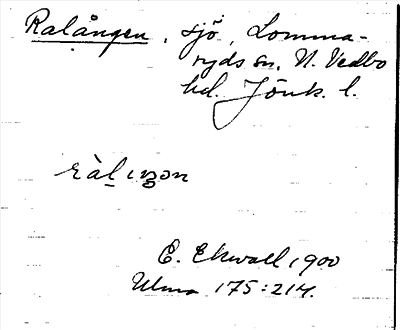 Ralången, sjö, Lomma-
ryds sn, N. Vedbo
hd. Jönk. l.
E. Ekwall 1900
Ulma 175:214.